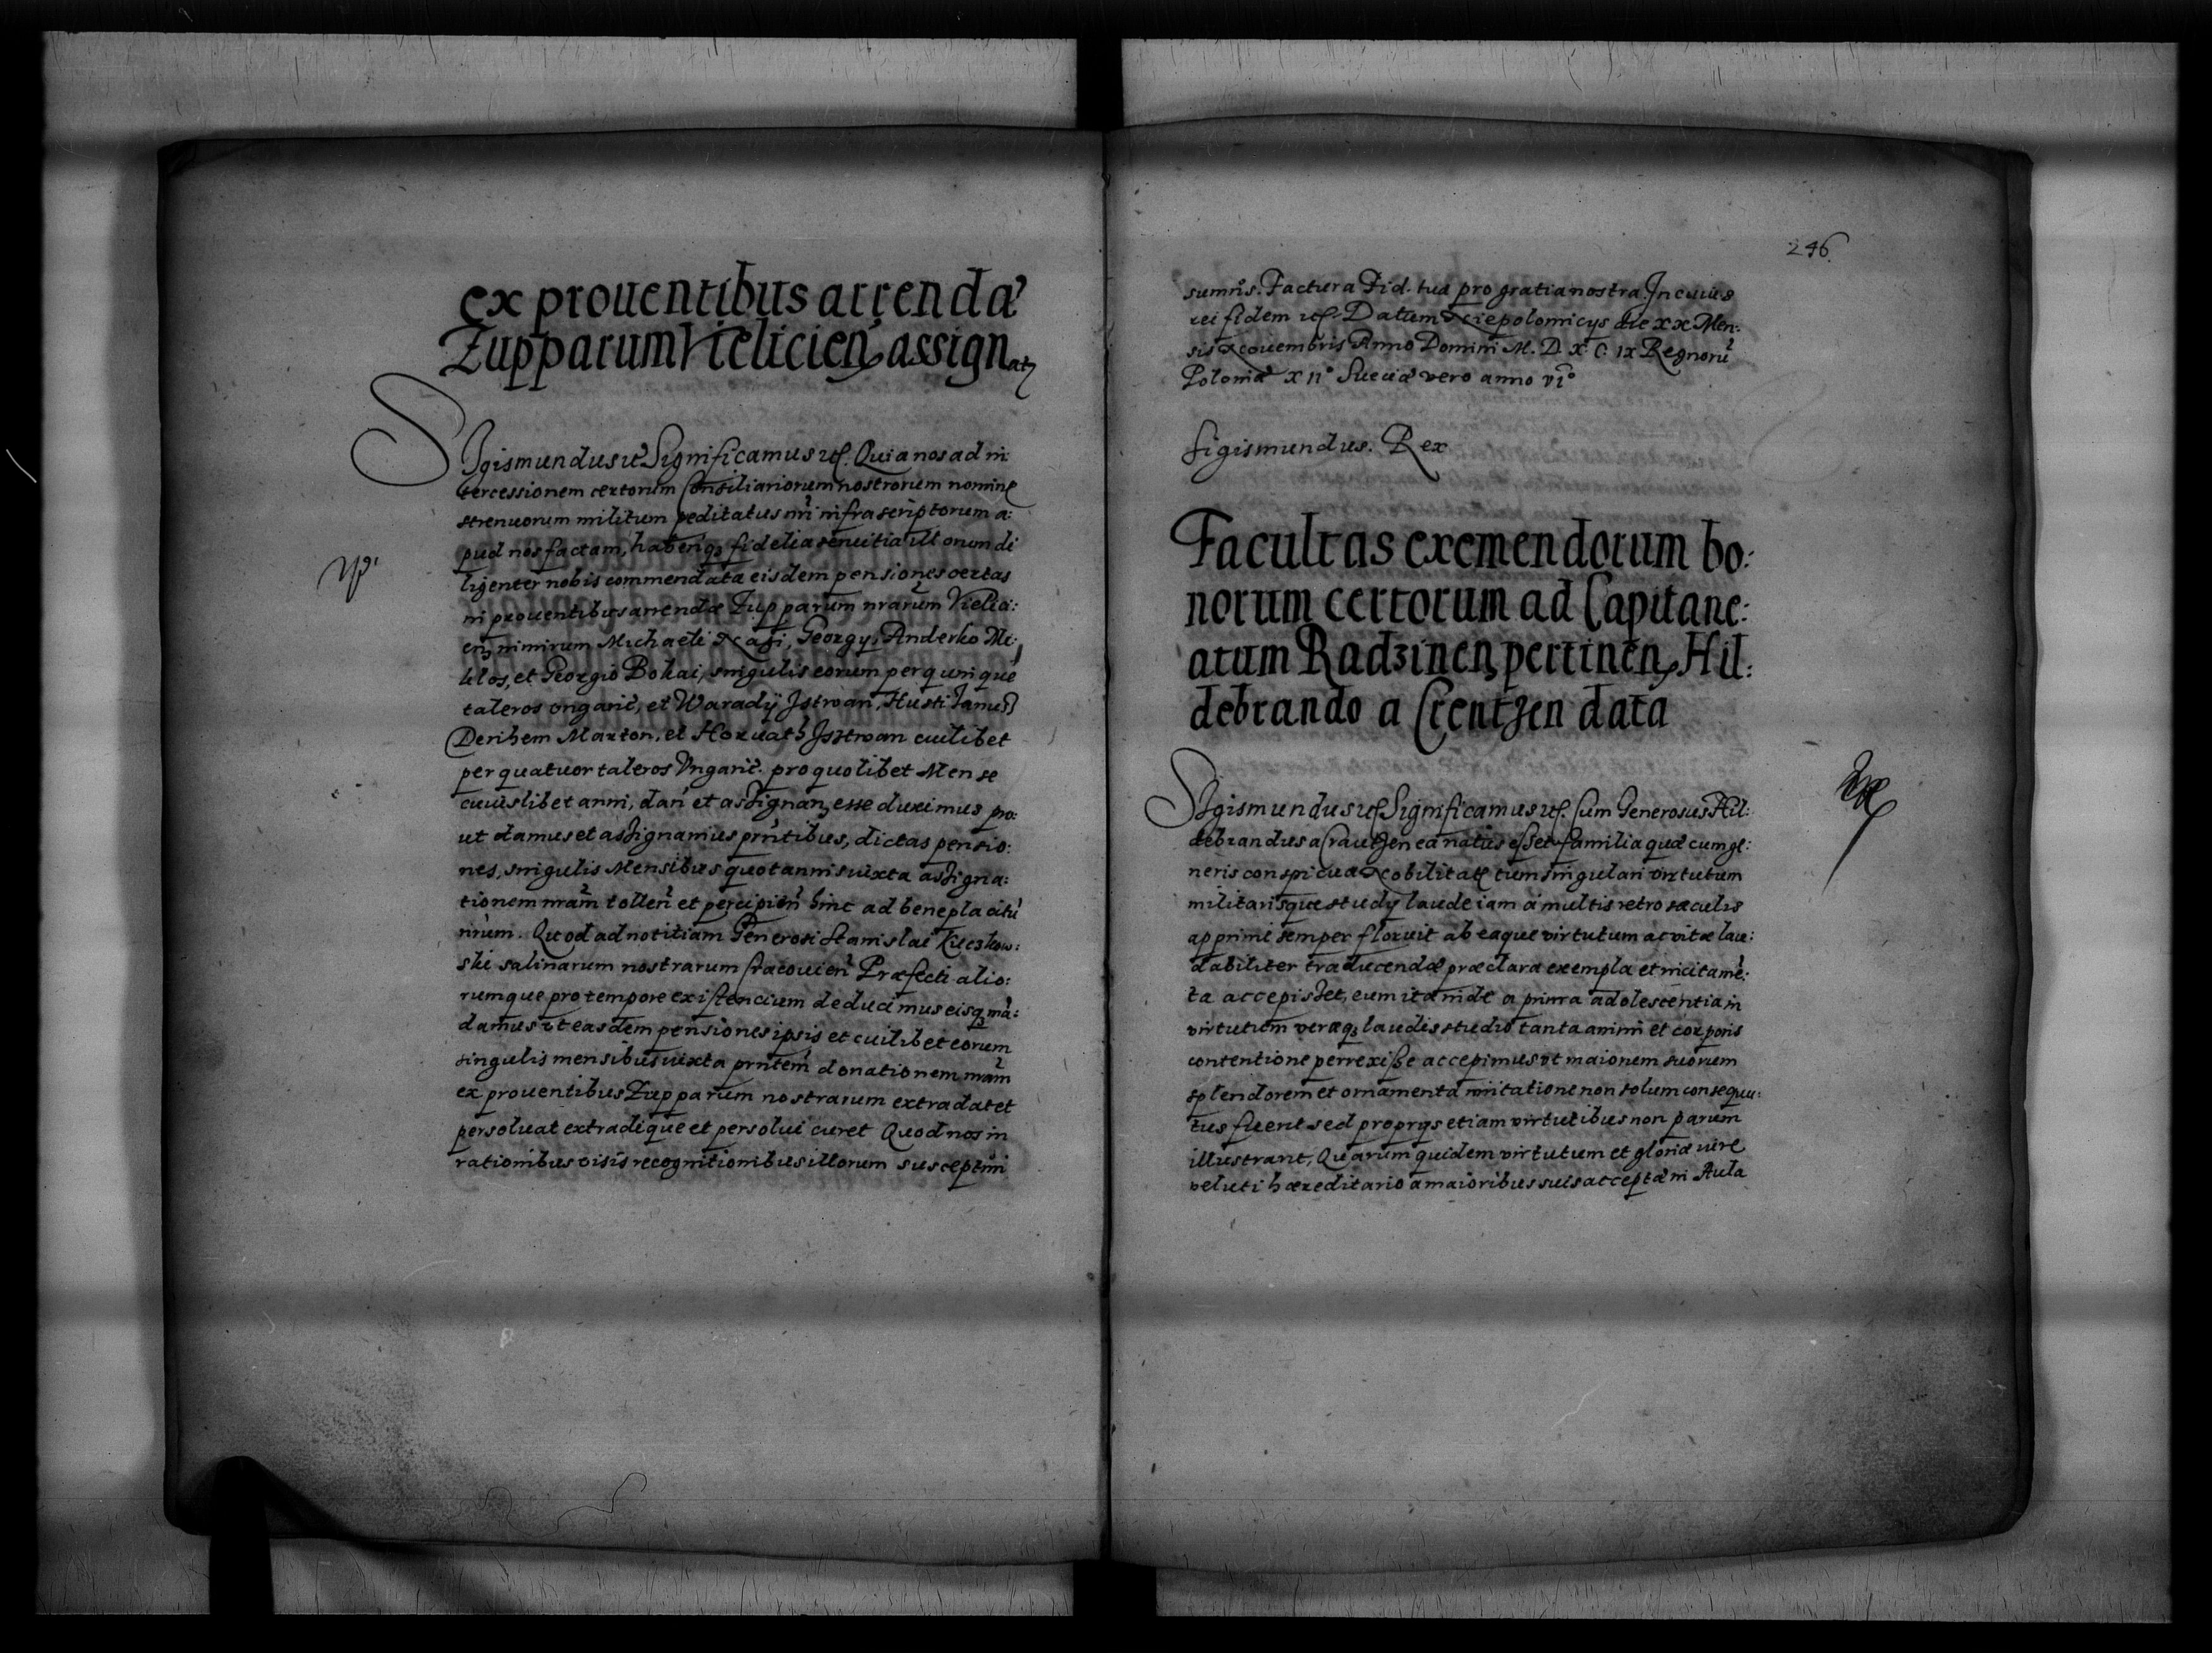 ex prouentibus arrendæ
Zupparum Vielicien assignatz
SJgismundus etc Significamus etc. Quia nos ad in:
tercessionem certorum Consiliariorum nostrorum nomine
strenuorum militum peditatus nri infrascriptorum a:
pud nos factam, habenq3 fidelia seruitia illorum di
ligenter nobis commendata eisdem pensiones certas
in prouentibus arrendæ Zupparum nrarum Vielici:
en3 nimirum Michaeli Nagi, Georgy, Anderko Mi:
klos, et Georgio Bokai, singulis eorum per quinque
taleros ongaric, et Waradÿ Jstwan, Husti Janus
Derihem Marton, et Horuath Jsstwan cuilibet
per quatuor taleros Vngaric. pro quolibet Mense
cuiuslibet anni, dan et assignan3 esse duximus pro:
ut damus et assignamus prntibus, dictas pensio:
nes, singulis Mensibus quotannis iuxta assigna:
tionem nram tollen et percipien hinc ad beneplacitu
nrum. Quod ad notitiam Generosi Stanislai
ski salinarum nostrarum Cracouien Præfecti alio:
rumque pro tempore existencium deducimus eisq3 mã:
damus vt easdem pensiones ipsis et cuilibet eorum
singulis mensibus iuxta prntem donationem nram
ex prouentibus Zupparum nostrarum extradat et
persoluat extradique et persolui curet Quod nos in
rationibus visis recognitionibus illorum suscepturi
246.
sumus. Factura Fid. tua pro gratia nostra. Jn cuius
rei fidem etc. Datum Niepolomicys die XX Men:
sis Nouembris Anno Domini M. D. X C. IX Regnorũ
Poloniæ XII° Sueciæ vero anno VI°
Sigismundus. Rex
Facultas exemendorum bo:
norum certorum ad Capitane:
atum Radzinen3 pertinen3 Hil:
debrando a Creutzen data
SJgismundus etc Significamus etc. Cum Generosus Hil:
debrandus a Crautzen ea natus esset familia quæ cum ge:
neris conspicuæ Nobilitate tum singulari virtutum
militarisque study laude iam a multis retro sæculis
apprime semper floruit ab eaque virtutum ac vitæ lau:
dabiliter traducendæ præclara exempla et incitamẽ:
ta accepisset, eum ita inde a prima adolescentia in
virtutum veræq3 laudis studio tanta animi et corporis
contentione perrexisse accepimus vt maiorum suorum
splendorem et ornamenta imitatione non solum consequu:
tus fuerit sed proprys etiam virtutibus non parum
illustrarit, Quarum quidem virtutum et gloriæ iure
veluti hæreditario a maioribus suis acceptæ in Aula